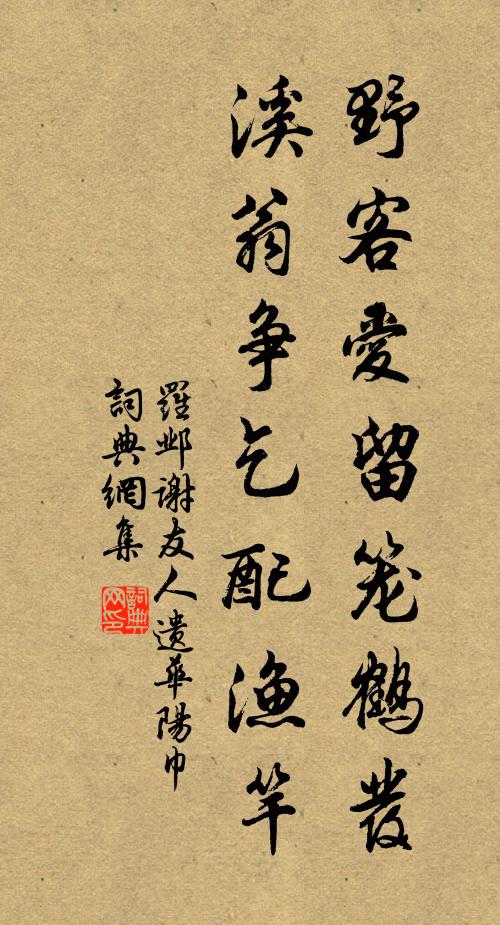 野客愛留笼鶴發
溪翁爭乞配漁竿
羅邺謝友人遺華陽巾
詞典網集
詞典
网印